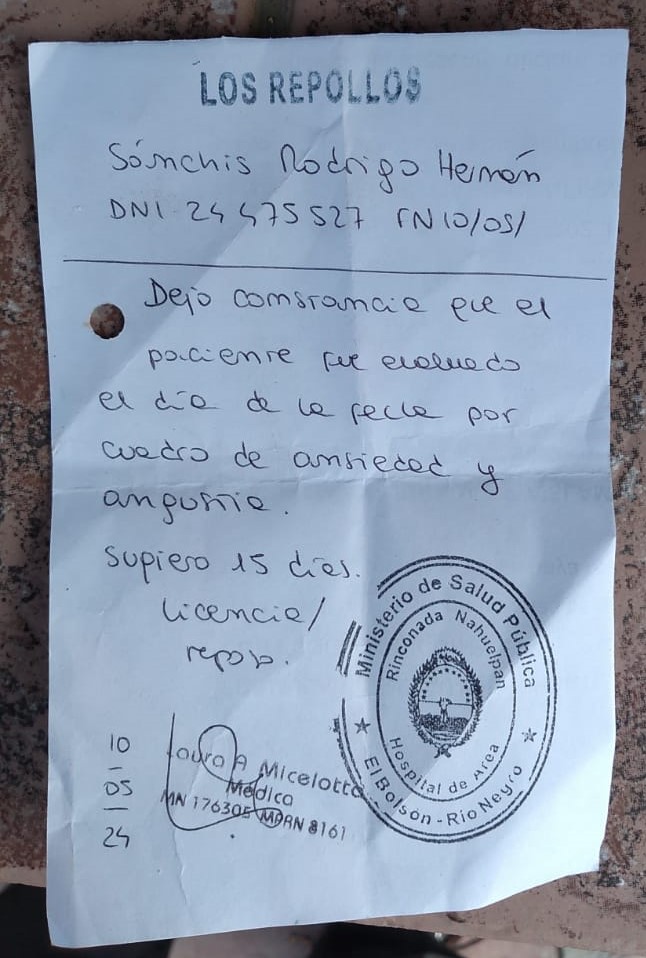 LOS REPOLLOS
Sánchis Rodrigo Hernán
DNI 24 475 527 FN 10/05/
Dejo constancia que el
paciente fue evaluado
el día de la fecha por
cuadro de ansiedad y
angustia.
Sugiero 15 días.
licencia/
reposo.
10
05
24
Laura A Micelotta
Médica
MN 176305 MPRN 8161
Ministerio de Salud Pública
Rinconada Nahuelpan
Hospital de Area
El Bolsón - Río Negro